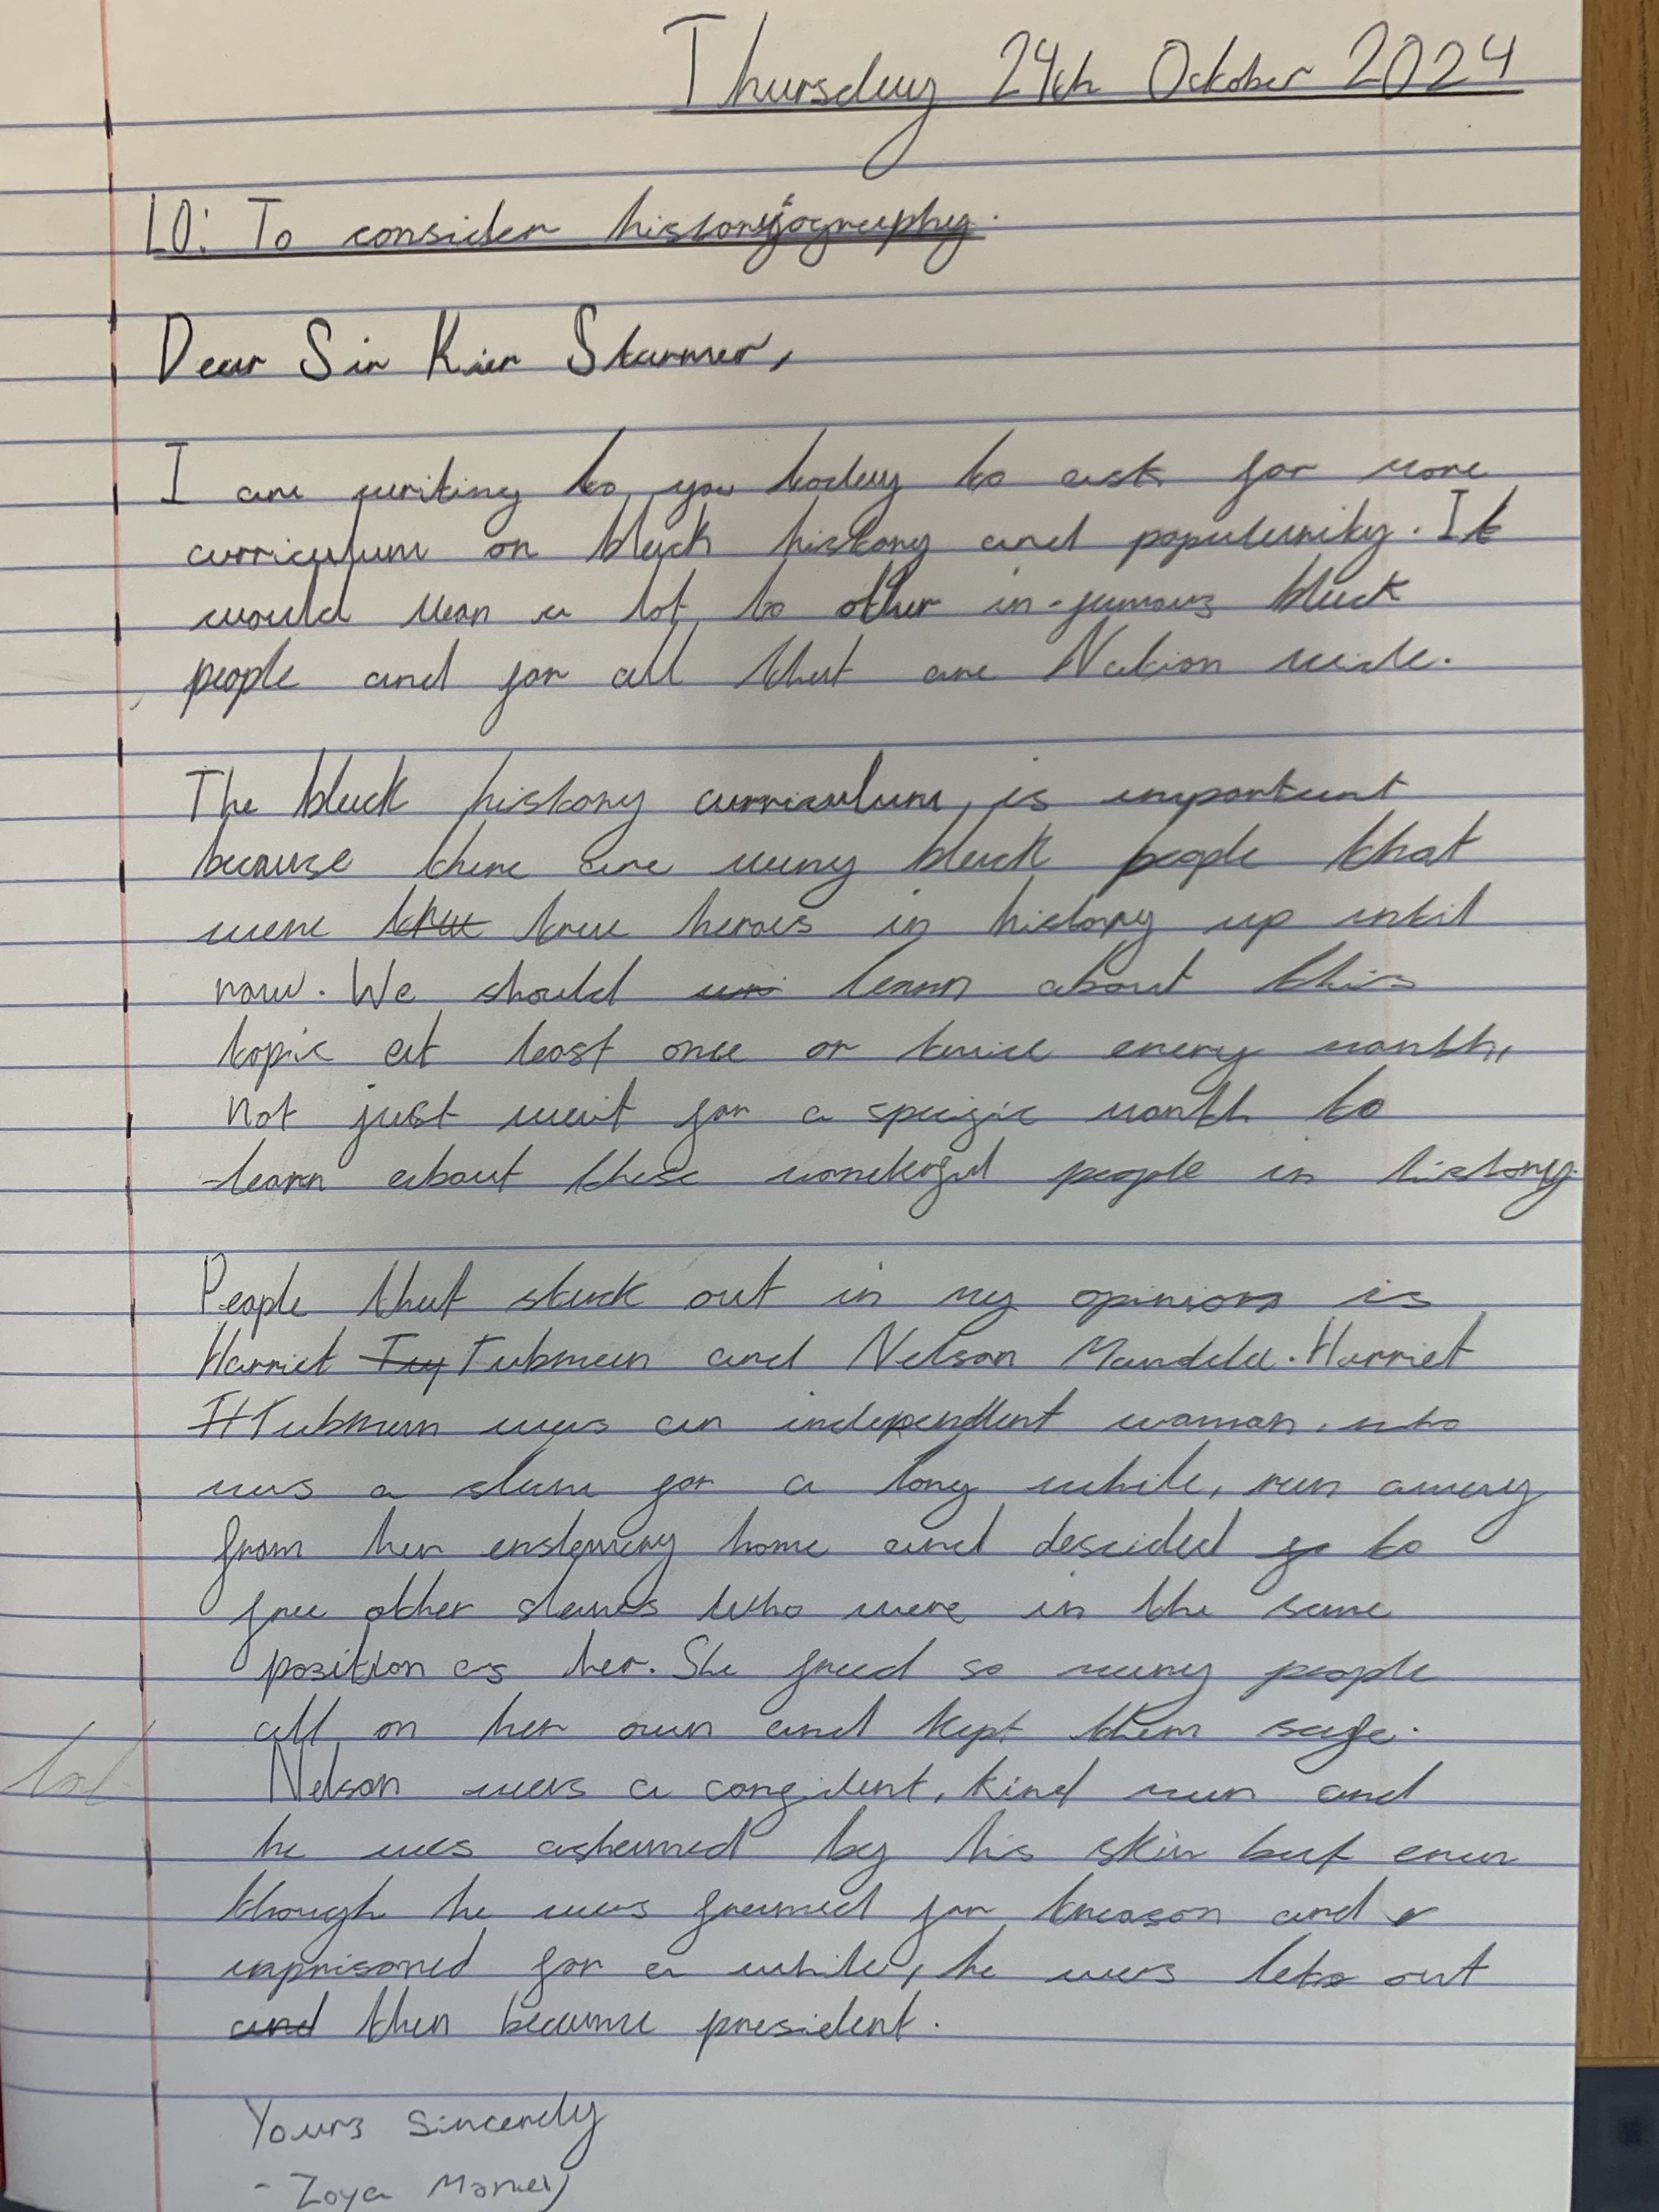 Thursday 24th October 2024
LO: To consider historiography.
Dear Sir Kier Starmer,
I am writing to you today to ask for more
curriculum on black history and populurity. It
would mean a lot to other in-famous black
people and for all that are Nation wide.
The black history curriculum, is important
because there are many black people that
were true heroes in history up until
now. We should learn about this
topic at least once or twice every month,
not just wait for a specific month to
learn about these wonderful people in history.
People that stuck out in my opinion is
Harriet Tubman and Nelson Mandela. Harriet
Tubman was an independent woman. who
was a slave for a long while, run away
from her enslaving home and descided to
free other slaves who were in the same
position as her. She freed so many people
all on her own and kept them safe.
Nelson was a confident, kind man and
he was ashamed by his skin but even
though he was framed for treason and
imprisoned for a while, he was let out
then became president.
Yours Sincerely
- Zoya